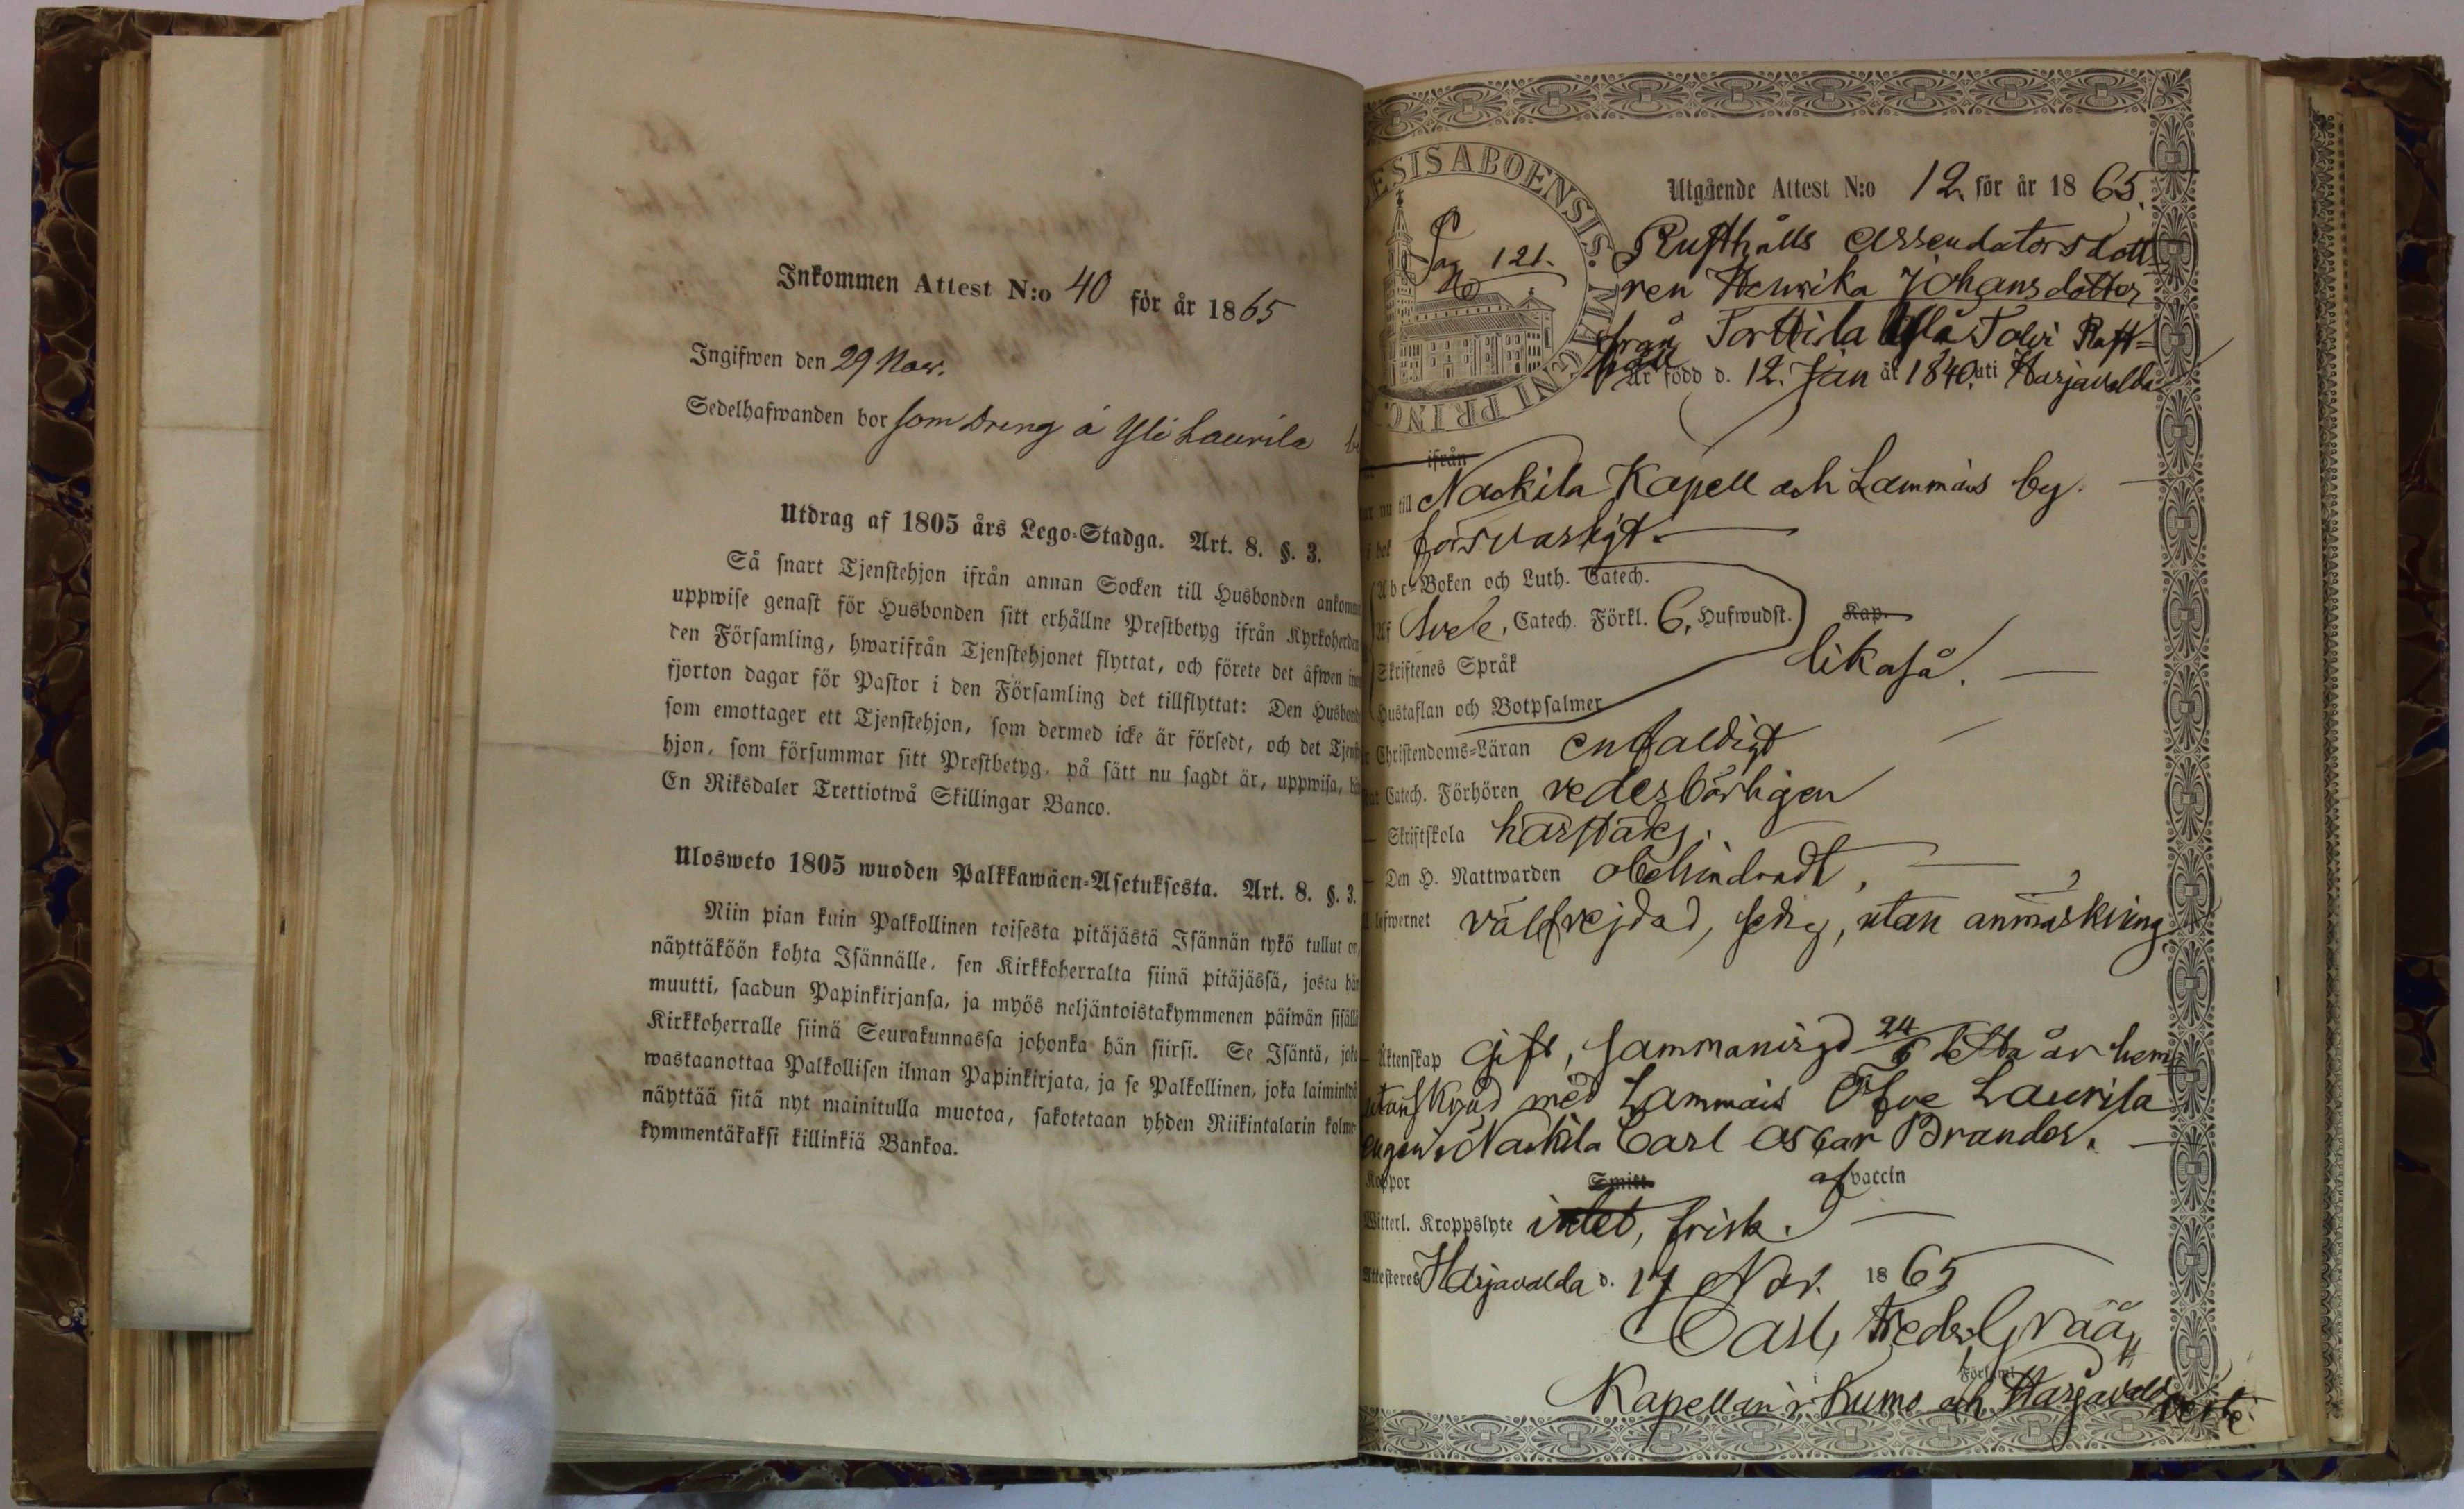 Inkommen Attest N:o 40 för år 1865
Ingifwen den 29 Nov.
Sedelhafwanden bor som Dreng å Yli Laurila
Utdrag af 1805 års Lego-Stadga. Art. 8. §. 3.
Så snart Tjenstehjon ifrån annan Socken till Husbonden ankommi
uppwise genast för Husbonden sitt erhållne Prestbetyg ifrån Kyrkoherden
den Församling, hwarifrån Tjenstehjonet flyttat, och förete det äfwen inom
fjorton dagar för Pastor i den Församling det tillflyttat: Den Husbonde
som emottager ett Tjenstehjon, som dermed icke är försedt, och det Tjenste
hjon, som försummar sitt Prestbetyg, på sätt nu sagdt är, uppwisa,
En Riksdaler Trettiotwå Skillingar Banco.
Ulosweto 1805 wuoden Palkkawäen-Asetuksesta. Art. 8. §. 3.
Niin pian kuin Palkollinen toisesta pitäjästä Isännän tykö tullut on,
näyttäköön kohta Isännälle, sen Kirkkoherralta siinä pitäjässä, josta hän
muutti, saadun Papinkirjansa, ja myös neljäntoistakymmenen päiwän sisällä
Kirkkoherralle siinä Seurakunnassa johonka hän siirsi. Se Isäntä, joka
wastaanottaa Palkollisen ilman Papinkirjata, ja se Palkollinen, joka laiminlyö
näyttää sitä nyt mainitulla muotoa, sakotetaan yhden Riikintalarin kolme-
kymmentäkaksi killinkiä Bankoa.
ESIS ABOENSIS. MAGNI PRINC
Utgående Attest N:o 12. för år 1865.
Pag 121.
Rusthålls Arrendators dott-
ren Henrika Johansdotter
från Torttila Tolvi Rust=
håll
är född d. 12. Jan år 1840. uti Harjavalda
ifrån
nu till Nackila Kapell och Lammais by.
i bok försvarligt.
Abc-Boken och Luth. Catech.
Af Svebe, Catech. Förkl. 6, Hufwudst. Kap.
Skriftenes Språk likaså.
Hustaflan och Botpsalmer
Christendoms-Läran enfaldigt
Catech. Förhören vederbörligen
Skriftskola härstädes.
Den H. Nattwarden obehindradt,
lefwernet välfrejdad, sedig, utan anmärkning.
Äktenskap Gift, sammanvigd 24/6 detta år hem
med Lammais Öfre Laurila
Nackila Carl Oscar Brander.
Koppor Smitt. af vaccin
Witterl. Kroppslyte intet, frisk.
Attesteres Harjavalda d. 17 Nov. 1865
Carl Fredr. Grääg
Församl.
Kapellan i Kumo och Harjavalda